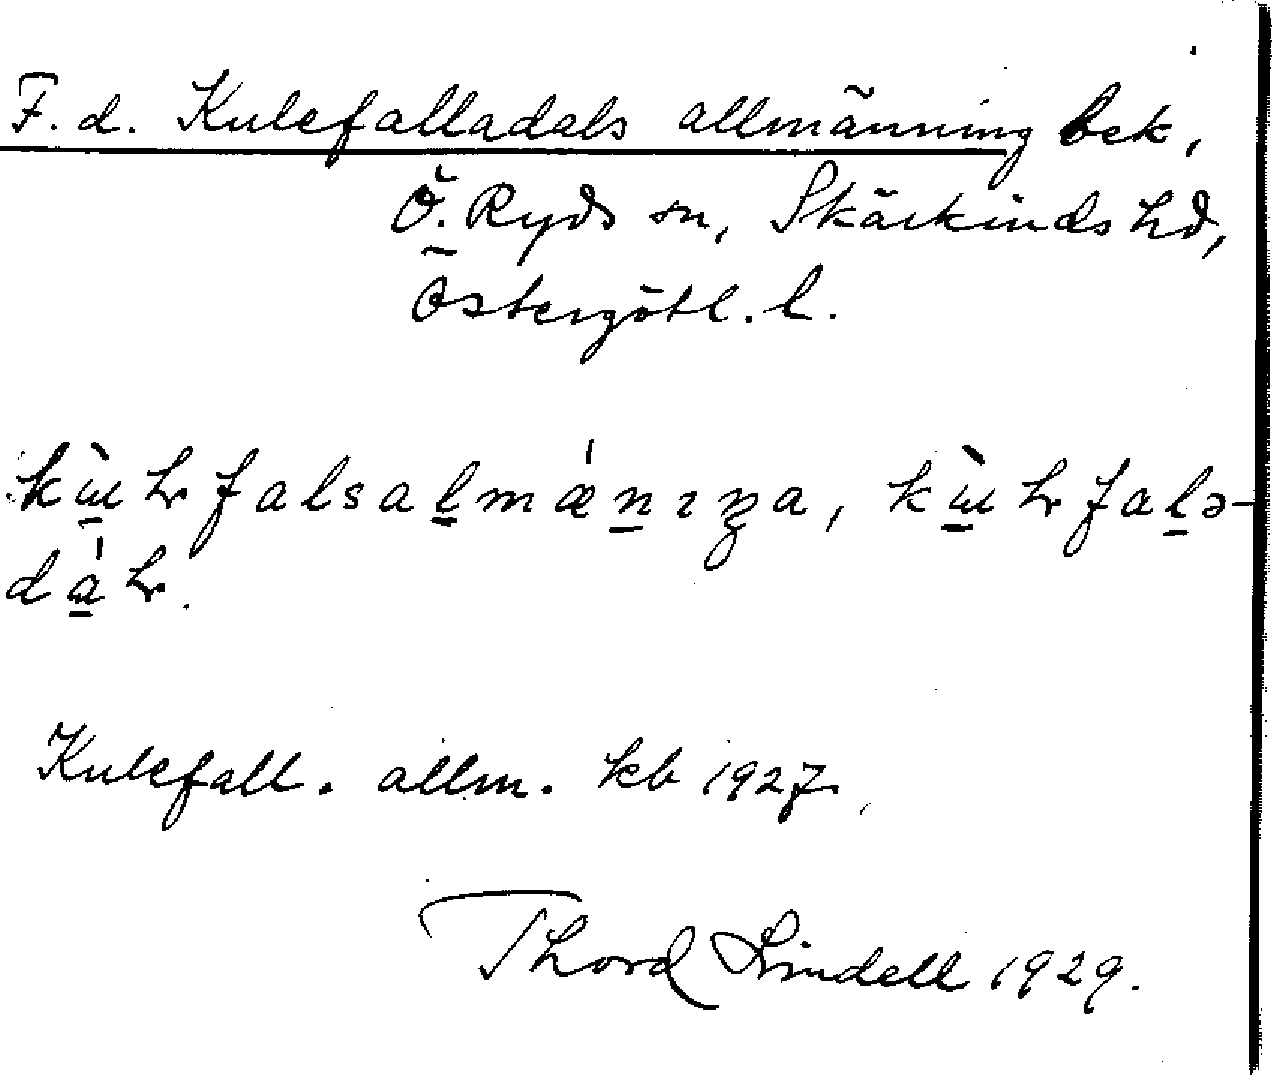 F. d. Kulefalladals allmänning bek,
Ö. Ryds sn, Skärkinds hd,
Östergötl. l.
falsalmǽnɪŋa,
Kulefall. allm. kb 1927.
Thord Lindell 1929.